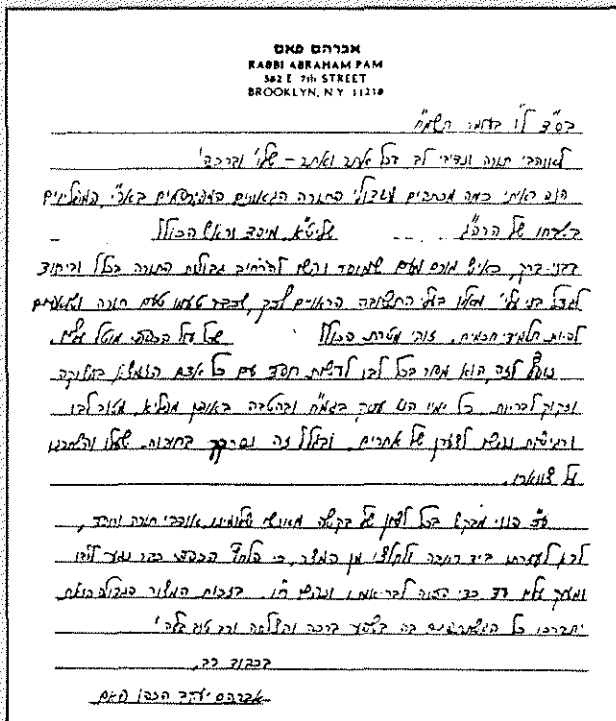 אברהם פאם
RABBI ABRAHAM PAM
582 E 7th STREET
BROOKLYN, N Y 11218
בס"ד ל"ו בעמר תשמ"ח
לאוהבי תורה ונדיבי לב בכל אתר ואתר - שלו' וברכה!
הנה ראיתי כמה מכתבים מגדולי התורה הגאונים המפורסמים באה"ק המפליגים
בשבחו של הרה"ג שליט"א מיסד וראש הכולל
בבני ברק, באיש מורם מעם שמוסר נפשו להרחיב גבולות התורה בכלל וביחוד
לגדל בני עליי' מאלו בעלי התשובה הראוים לכך, שכבר טעמו טעם תורה
להיות תלמידי חכמים. זוהי מטרת הכולל שכל עול הכספי מוטל עליו.
נוסף לזה, הוא מסור בכל לבו לעשות חסד עם כל אדם הנמצא במצוקה
וזקוק לבריות. כל ימיו הוא עוסק בגמ"ח ובהטבה באופן מפליא, מטוב לבו
ורגישות נפשו לצערן של אחרים. ובגלל זה נסתבך בחובות שעלו והשתרגו
על צוארו.
ע"כ הנני מבקש בכל לשון של בקשה מאנשי שלומינו אוהבי תורה וחסד,
לבא לעזרתו ביד רחבה ולחלצו מן המצר, כי הלחץ הכספי כבר נגע ללבו
ומעיק עליו עד כדי סכנה לבריאותו ונפשו ח"ו. בזכות המצוה הגדולה הזאת
יתברכו כל המשתתפים בה בשפע ברכה והצלחה ורב טוב סלה!
בכבוד רב,
אברהם יעקב הכהן פאם